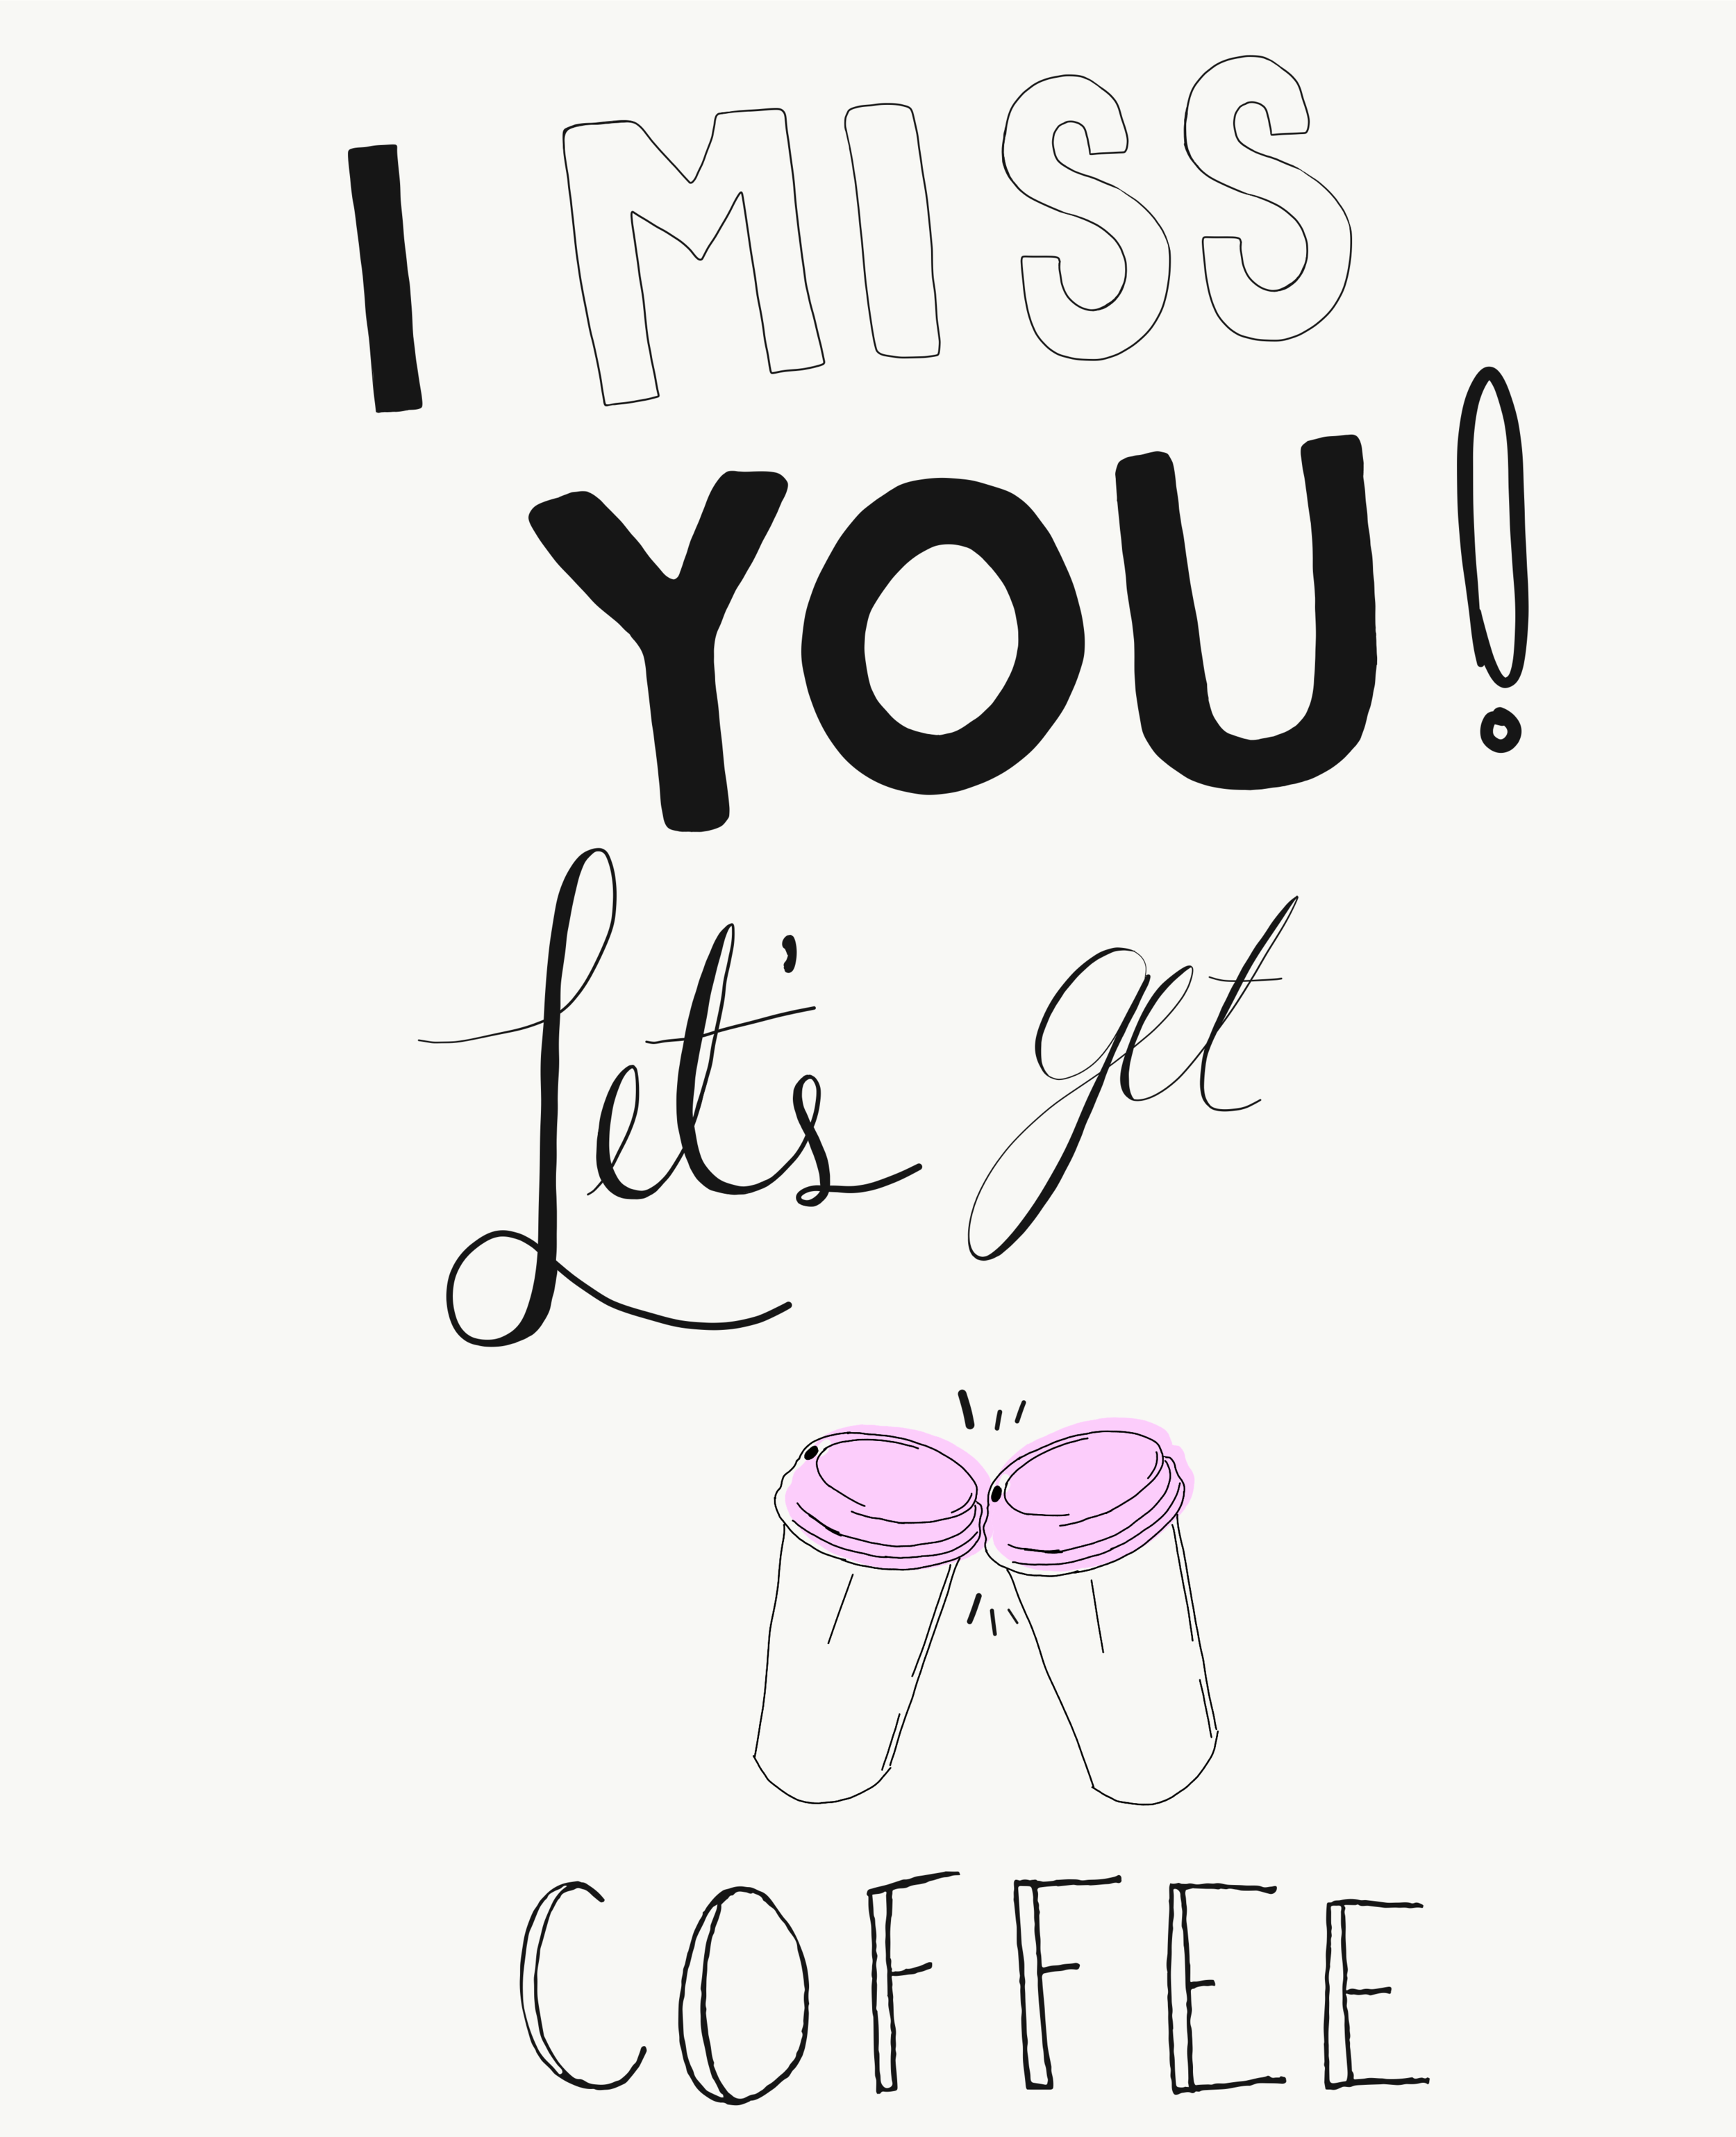 I MISS
YOU!
Let's get
COFFEE